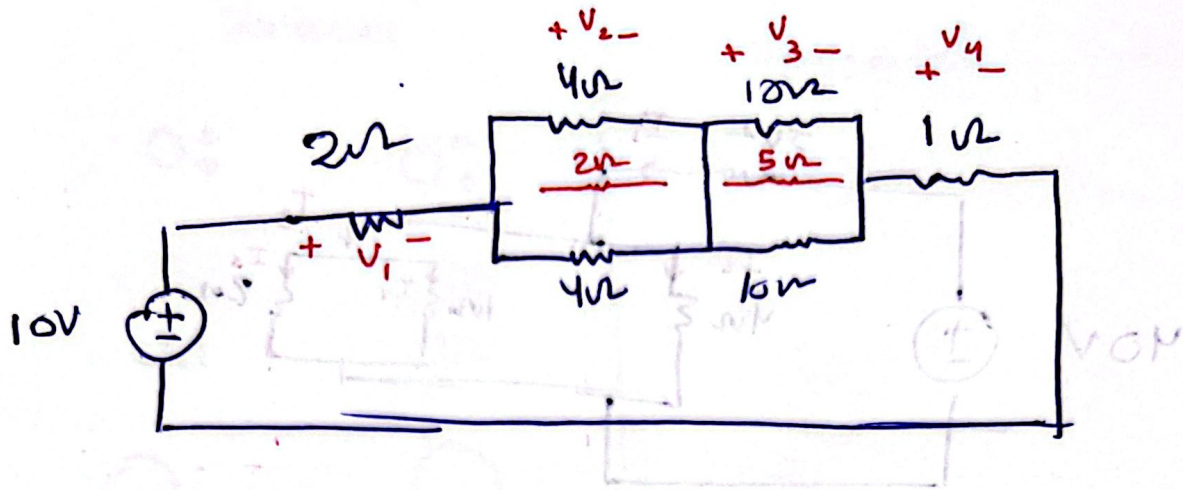 + V₂ −
+ V₃ −
+ V₄ −
4Ω
10Ω
2Ω
1Ω
2Ω
5Ω
+ V₁ −
4Ω
10Ω
10V
+
−